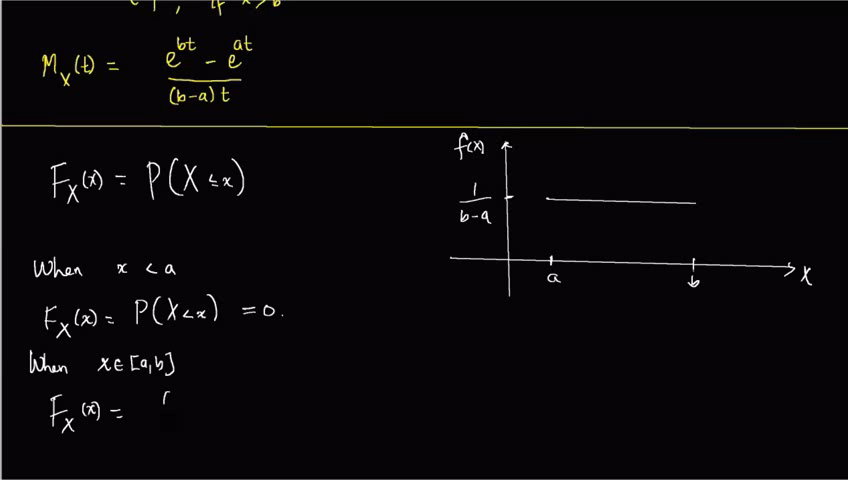 if x > b
M_X(t) = (e^{bt} - e^{at}) / ((b-a)t)
F_X(x) = P(X ≤ x)
When x < a
F_X(x) = P(X < x) = 0.
When x ∈ [a,b]
F_X(x) =
f(x)
1/(b-a)
a
b
X